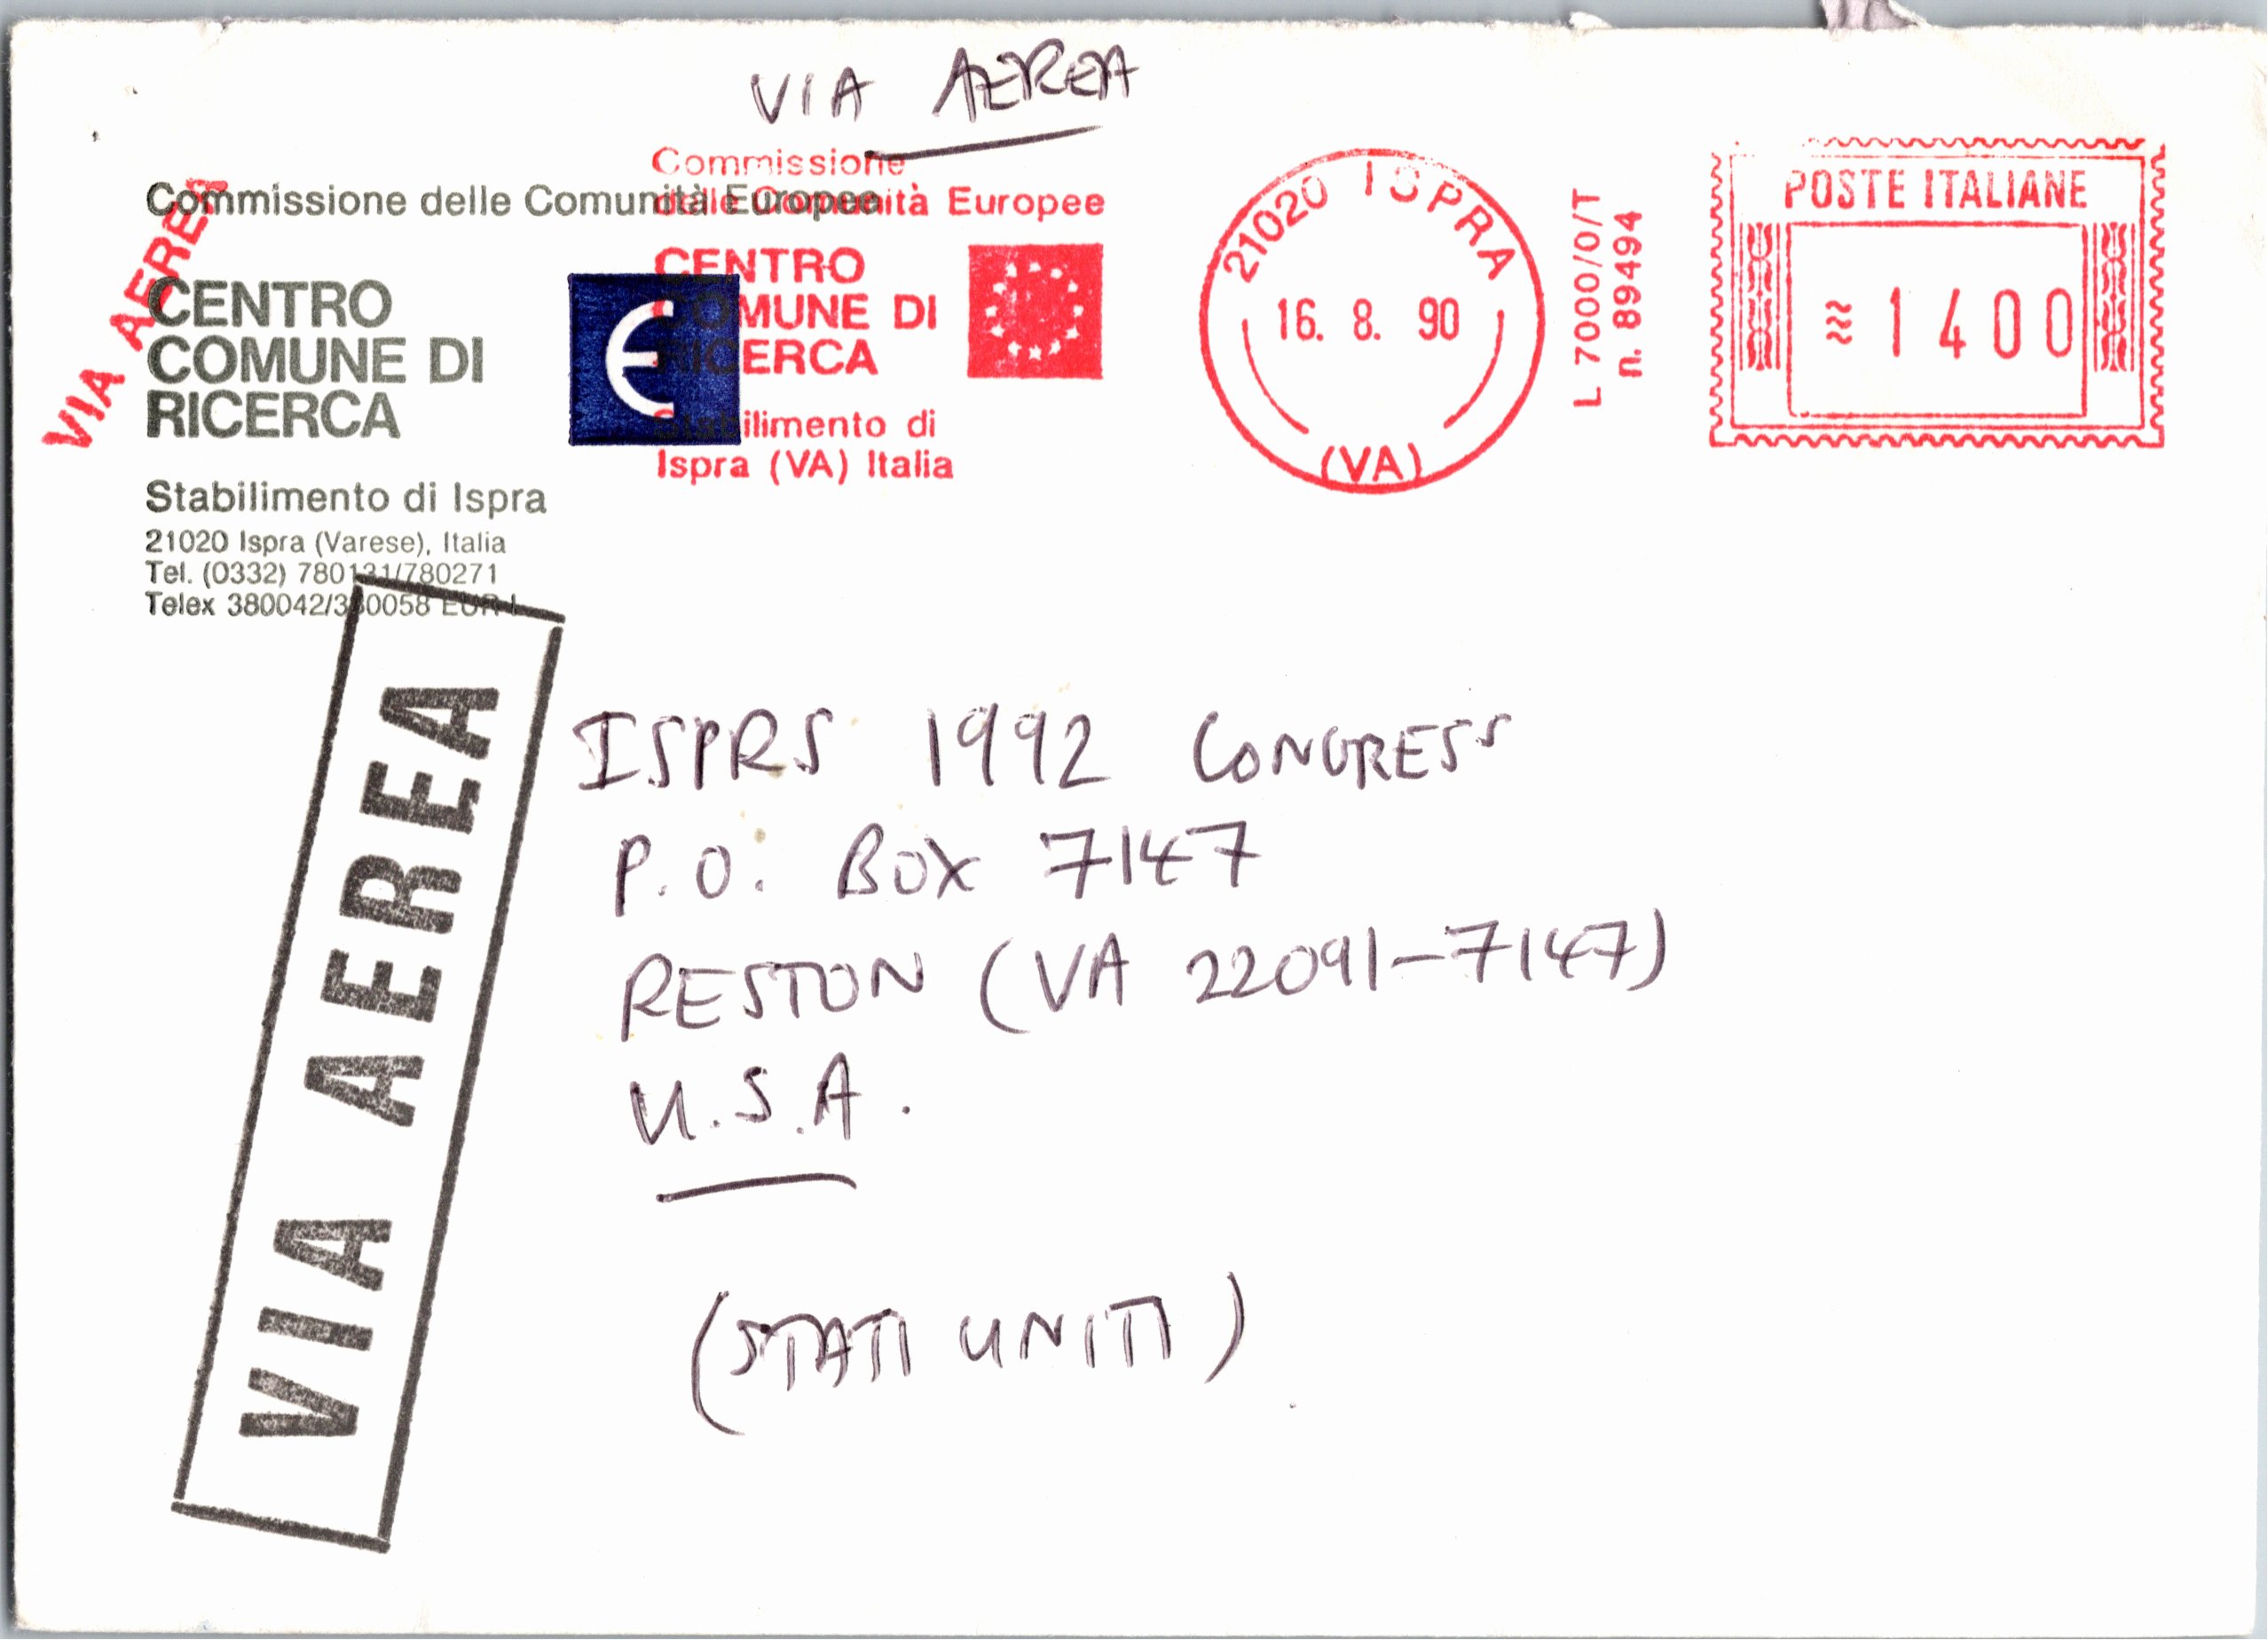 VIA AEREA
Commissione
delle Comunità Europee
CENTRO
COMUNE DI
RICERCA
Stabilimento di
Ispra (VA) Italia
21020 ISPRA
16. 8. 90
(VA)
L 7000/0/T
n. 89494
POSTE ITALIANE
≋1400
VIA AEREA
Commissione delle Comunità Europee
CENTRO
COMUNE DI
RICERCA
Stabilimento di Ispra
21020 Ispra (Varese), Italia
Tel. (0332) 780131/780271
Telex 380042/380058 EUR I
VIA AEREA
ISPRS 1992 CONGRESS
P.O. BOX 7147
RESTON (VA 22091-7147)
U.S.A.
(STATI UNITI)